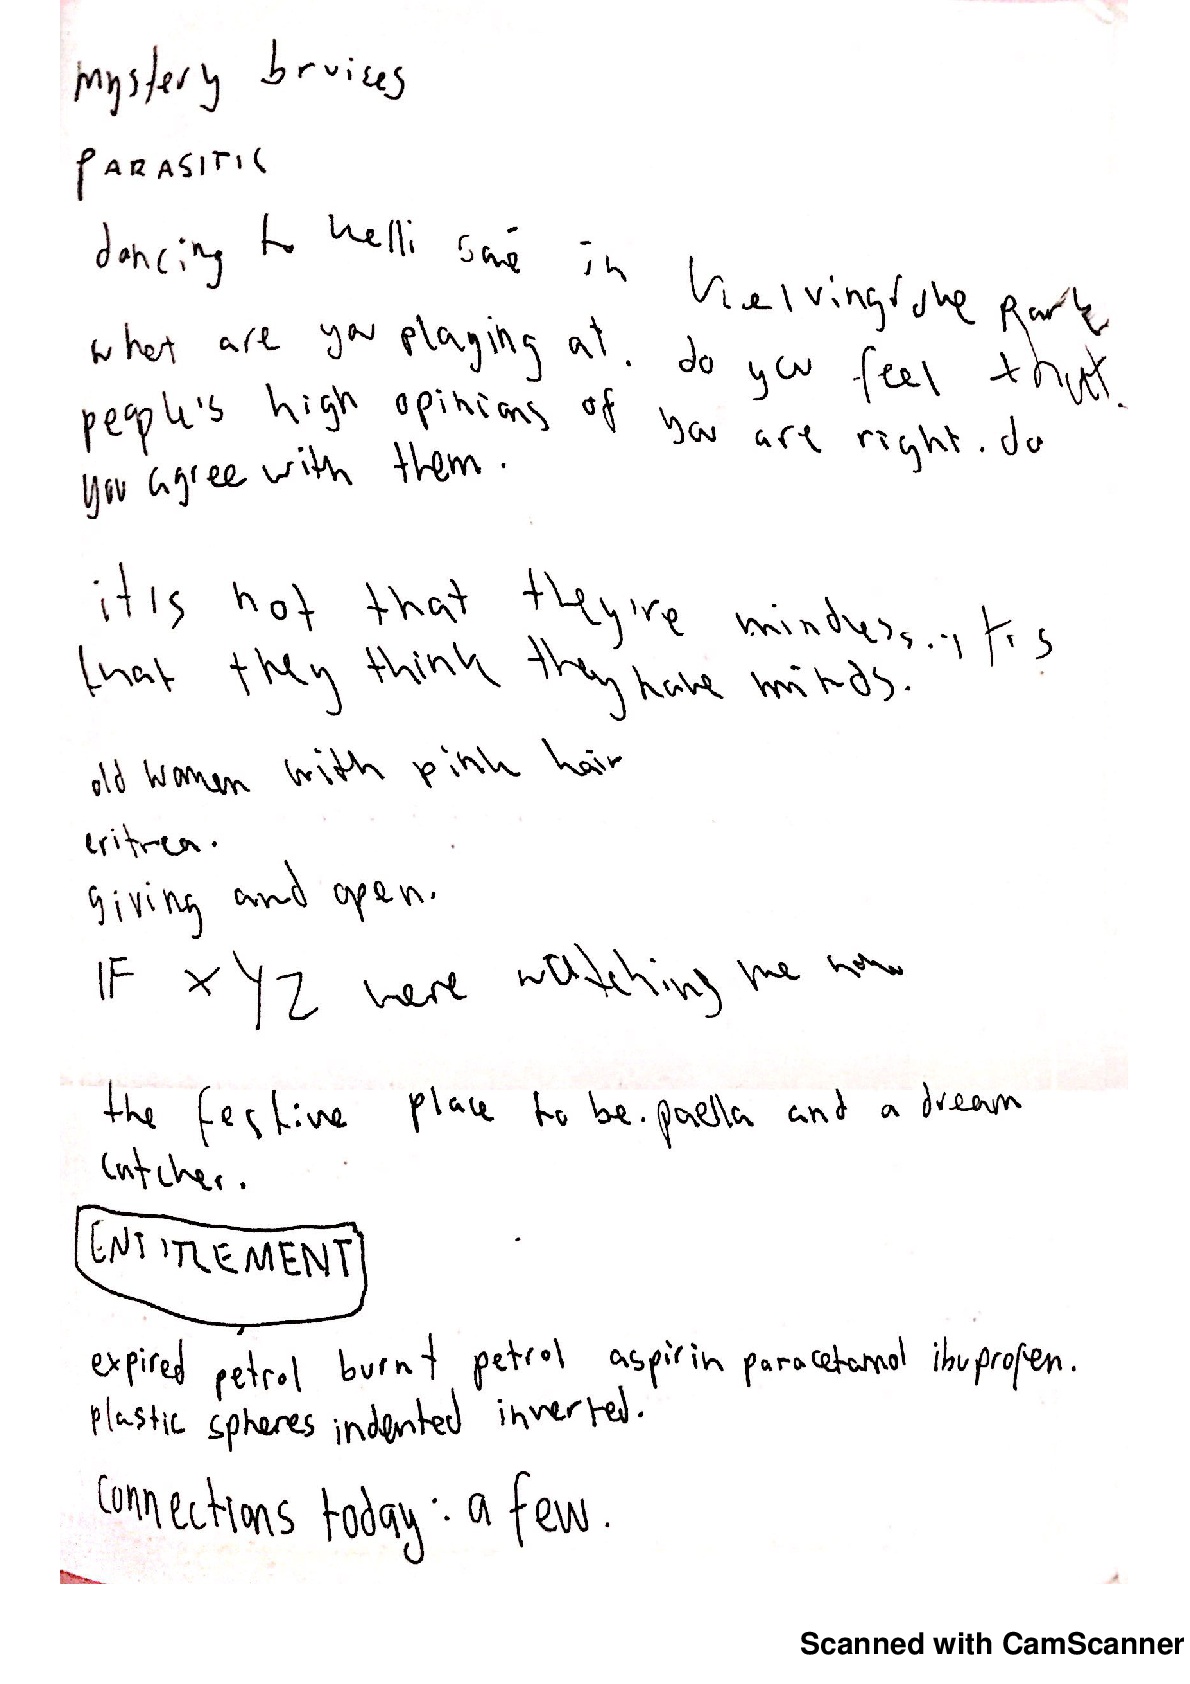 mystery bruises
PARASITIC
dancing to in Kelvingrove Park
what are you playing at. do you feel that
people's high opinions of you are right. do
you agree with them.
it is not that they're mindless. it is
that they think they have minds.
old women with pink hair
eritrea.
giving and open.
IF XYZ were watching me now
the festive place to be. paella and a dream
catcher.
ENTITLEMENT
expired petrol burnt petrol aspirin paracetamol ibuprofen.
plastic spheres indented inverted.
connections today: a few.
Scanned with CamScanner